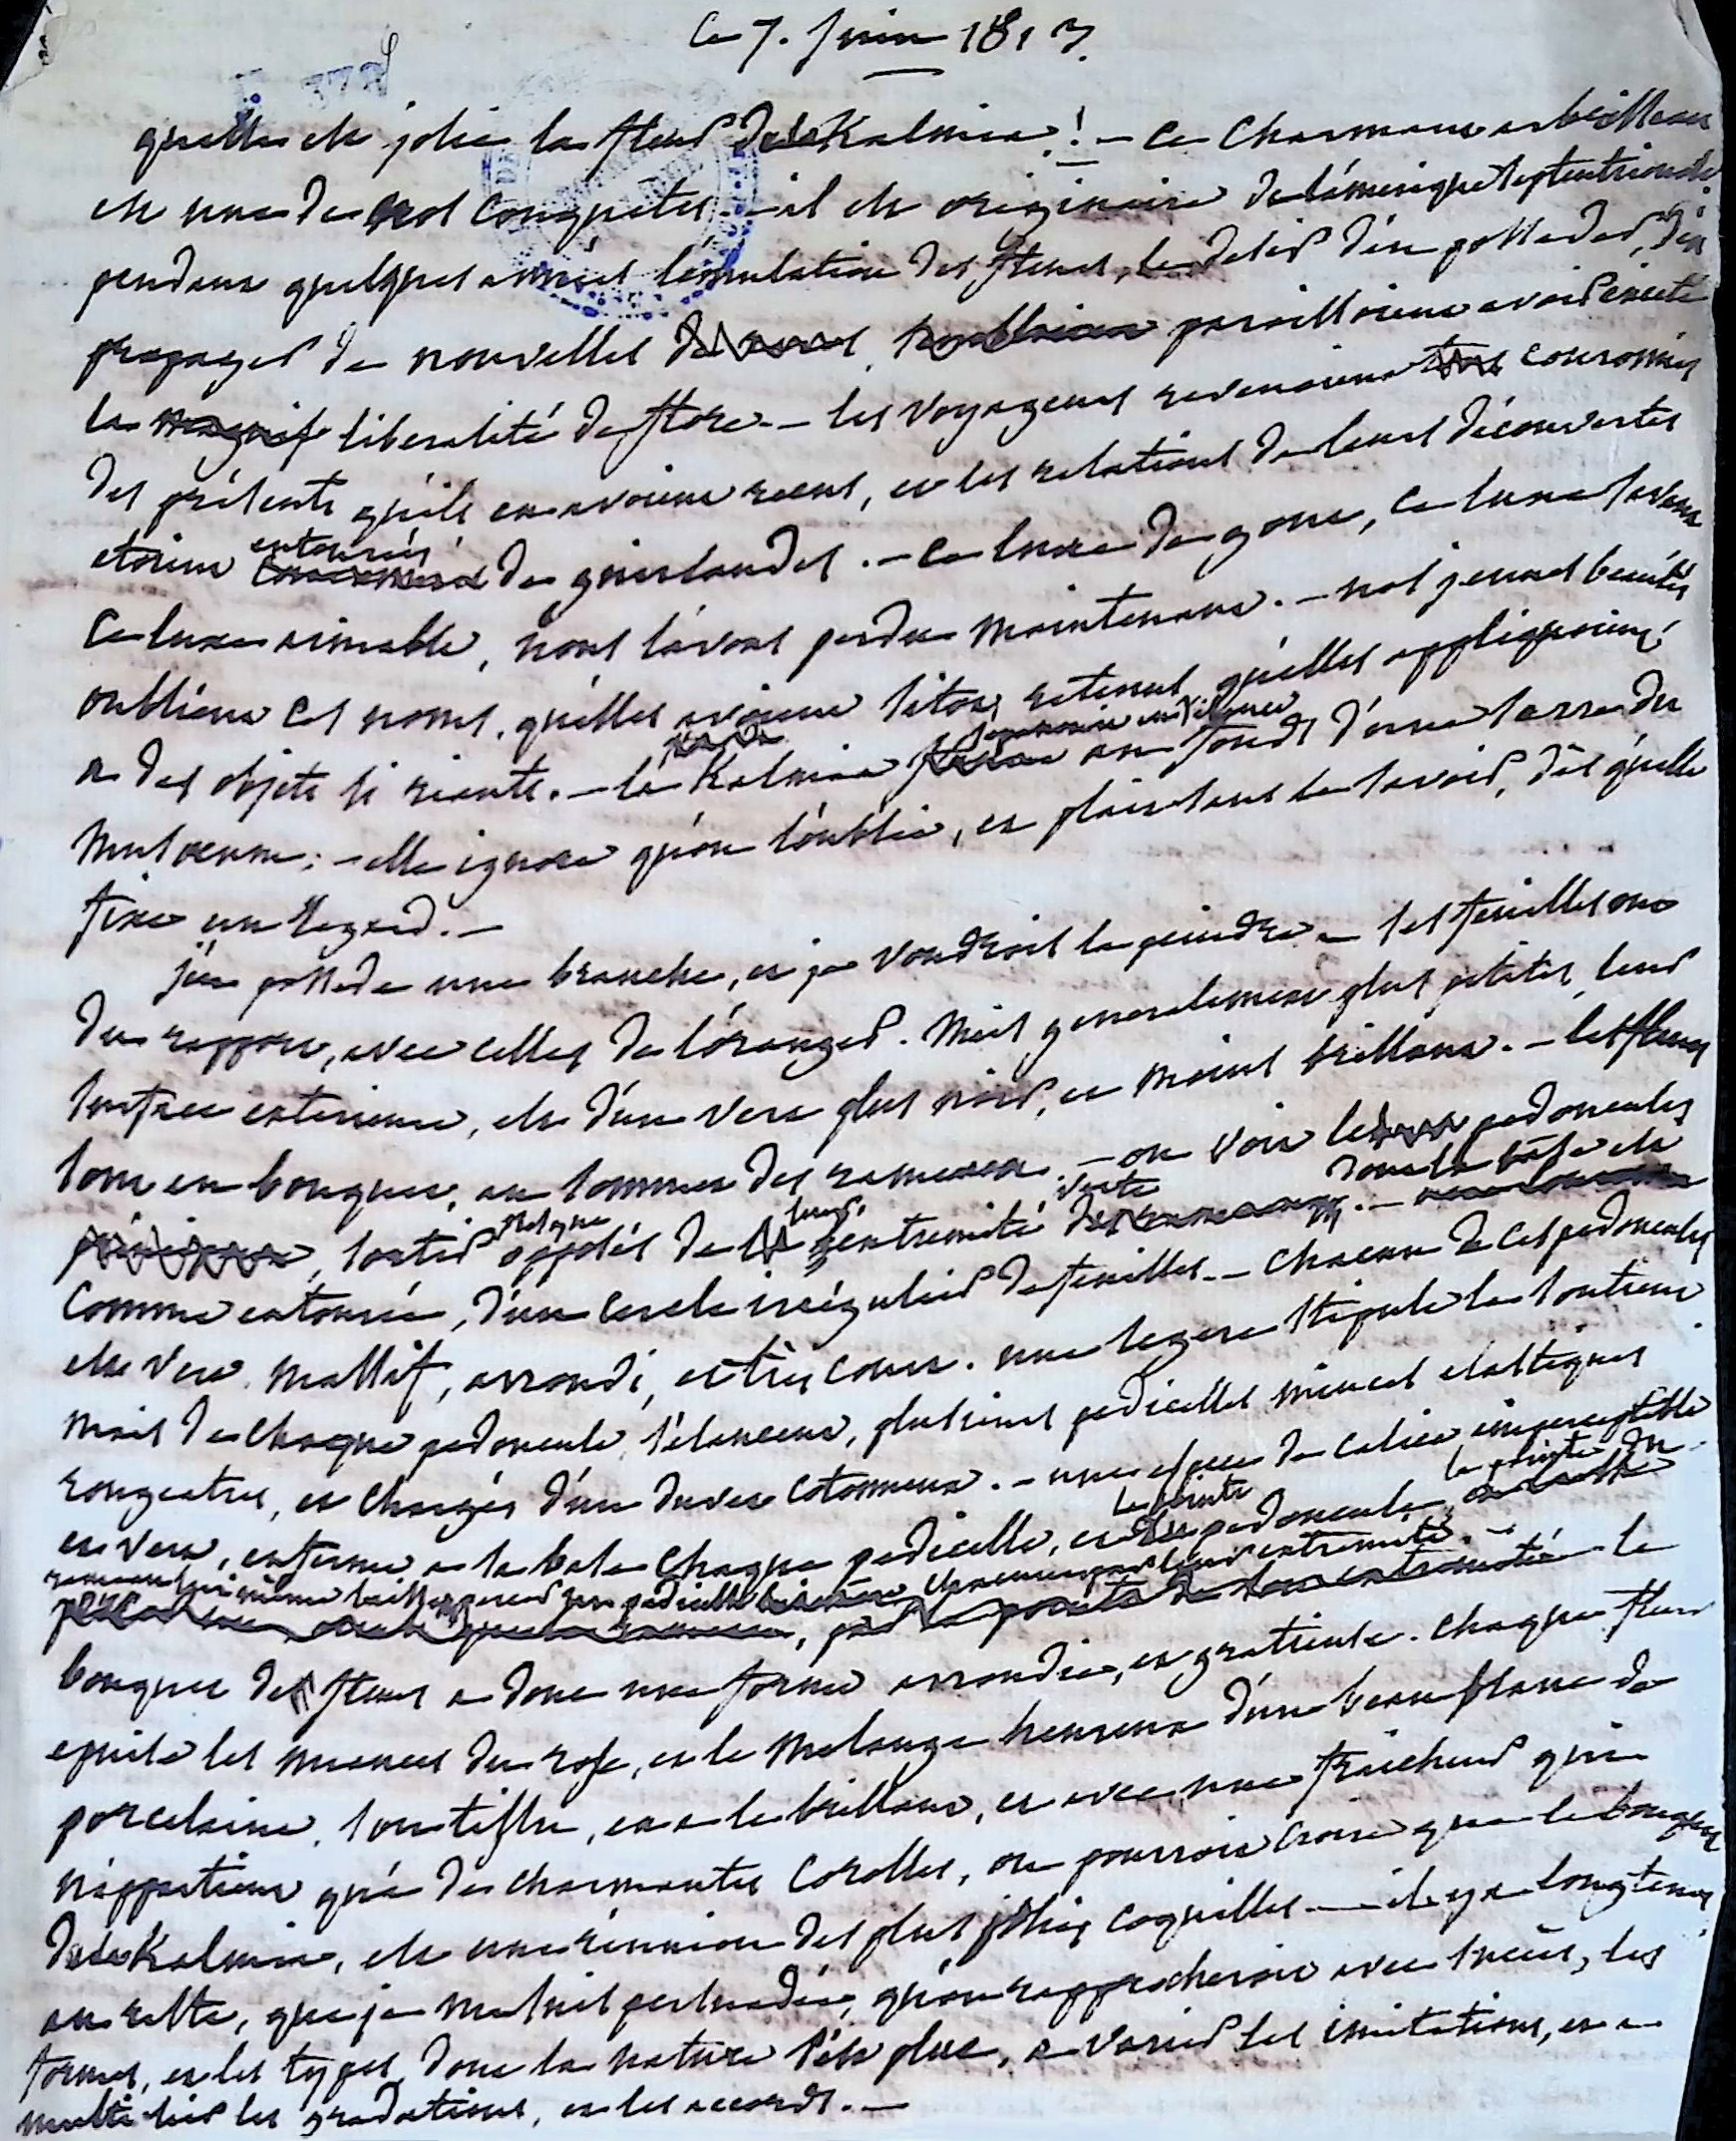 Ce 7. Juin 1813.
quelle est jolie la fleur de le Kalmia ! – ce charmant arbrisseau
est une de nos conquetes. – il est originaire de l'amerique septentrionale
pendant quelques années l'emulation des fleurs, le desir d'en posseder, d'en
propager de nouvelles paroissoient avoir excité
la liberalité de flore. – les voyageurs revenoient couronnés
des présents qu'ils en avoient recus, et les relations de leurs découvertes
etoient entourées de guirlandes. – ce luxe de gout, ce luxe savant
ce luxe aimable, nous l'avons perdu maintenant. – nos jeunes beautés
oublient ces noms, qu'elles avoient sitost retenus, qu'elles appliquoient
a des objets si riants. – le Kalmia s'epanouie en silence au fond d'une terrasse du
Museum; – elle ignore qu'on l'oublie, et plait sans le savoir, dès qu'elle
fixe un regard. –
j'en possede une branche, et je voudrois la peindre – ses feuilles ont
du rapport, avec celles de l'oranger. Mais generalement plus petites, leur
surface exterieure, est d'un vert plus noir, et moins brillant. – les fleurs
sont en bouquet, au sommet des rameaux. – on voit les pedoncules
sortir opposés de leur extremité verte dont la base est
comme entourée, d'un cercle irrégulier de feuilles. – chacun de ces pedoncules
est vert, massif, arrondi, et très court. une legere stipule le soutient
mais de chaque pedoncule, s'elancent, plusieurs pedicelles minces elastiques
rougeatres, et chargés d'un duvet cotonneux. – une espece de calice imperceptible
et vert, enferme a la base chaque pedicelle, et la pointe du pedoncule, la pointe du
rameau lui même chacun par leur extremité. – le
bouquet de fleurs a donc une forme arrondie, et gratieuse. chaque fleur
epuise les nuances du rose, et le melange heureux d'un beau blanc de
porcelaine. son tissu, en a le brillant, et avec une fraicheur qui
n'appartient qu'a de charmantes corolles, on pourroit croire que le bouquet
de le Kalmia, est une réunion des plus jolies coquilles. — il y a longtems
au reste, que je me suis persuadée, qu'on rapprocheroit avec succès, les
formes, et les types, dont la nature s'est plue, a varier les imitations, et a
multiplier les gradations, et les accords. –